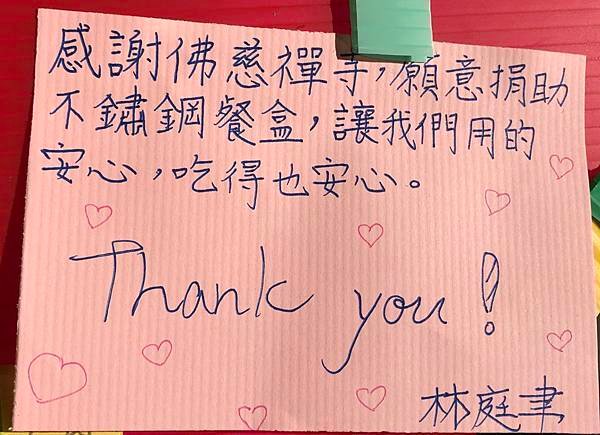 感謝佛慈禪寺，願意捐助
不鏽鋼餐盒，讓我們用的
安心，吃得也安心。
Thank you!
林庭聿